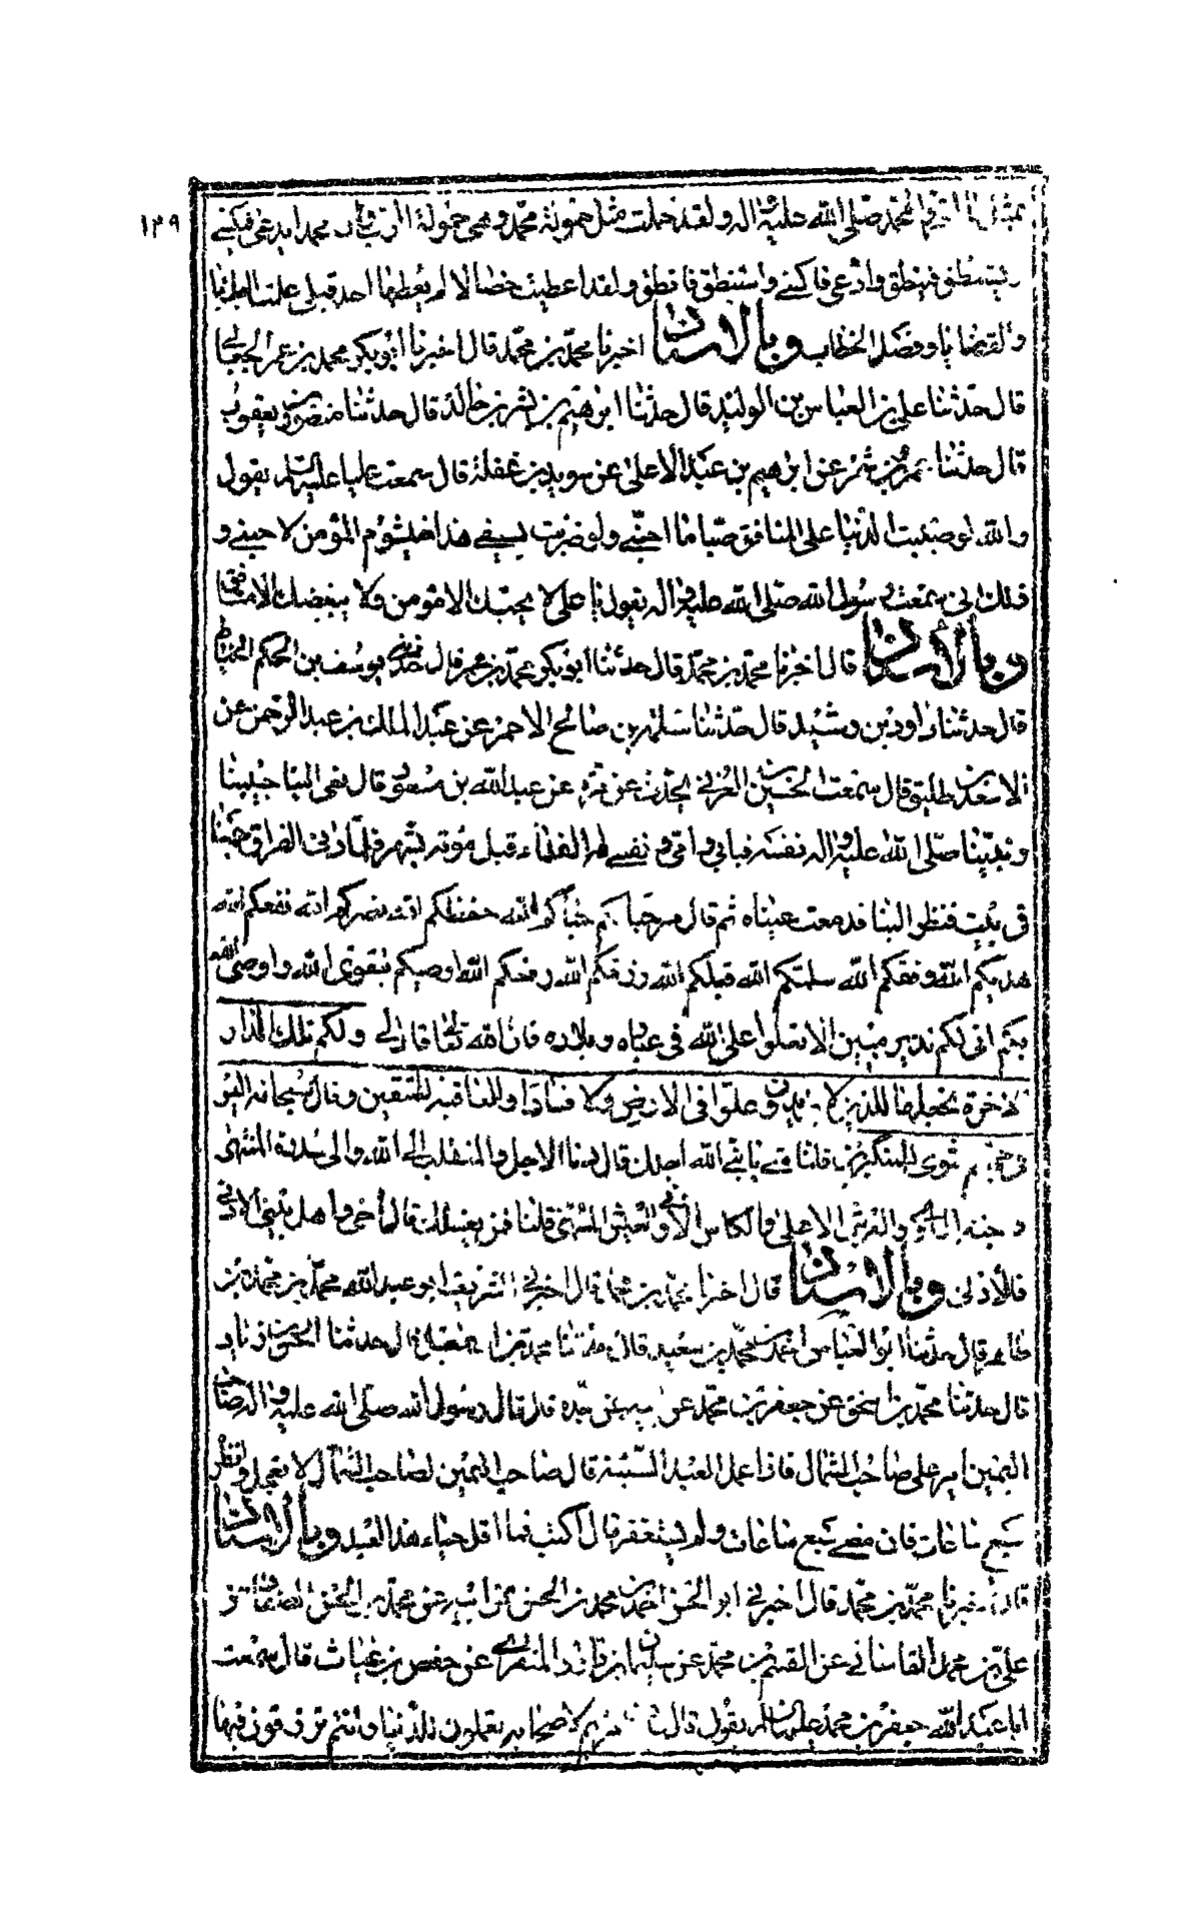 ١٢٩
بمثل ما اقروا لمحمد صلى الله عليه واله ولقد حملت مثل حمولة محمد وهي حمولة الرب وان محمدا يدعى فيكسى
ويستنطق فينطق وادعى فاكسى واستنطق فانطق ولقد اعطيت خصالا لم يعطها احد قبلى علمت البلايا
والقضايا وفصل الخطاب وبالاسناد اخبرنا محمد بن محمد قال اخبرنا ابو بكر محمد بن عمر الجعابى
قال حدثنا على بن العباس بن الوليد قال حدثنا ابرهيم بن بشر بن خالد قال حدثنا منصور بن يعقوب
قال حدثنا عمرو بن شمر عن ابرهيم بن عبد الاعلى عن سويد بن غفلة قال سمعت عليا عليه السلم يقول
والله لو صببت الدنيا على المنافق صبا ما احبنى ولو ضربت بسيفى هذا خيشوم المؤمن لاحبنى و
ذلك انى سمعت رسول الله صلى الله عليه واله يقول يا على لا يحبك الا مؤمن ولا يبغضك الا منافق
وبالاسناد قال اخبرنا محمد بن محمد قال حدثنا ابو بكر محمد بن عمر قال حدثنى يوسف بن الحكم الحناط
قال حدثنا داود بن رشيد قال حدثنا سلمة بن صالح الاحمر عن عبد الملك بن عبد الرحمن عن
الاشعث بن طليق قال سمعت الحسن العرنى يحدث عن مرة عن عبد الله بن مسعود قال نعى الينا حبيبنا
ونبينا صلى الله عليه واله نفسه فبابى وامى ونفسى له الفداء قبل موته بشهر فلما دنى الفراق جمعنا
فى بيت فنظر الينا فدمعت عيناه ثم قال مرحبا بكم حياكم الله حفظكم الله نصركم الله نفعكم الله
هديكم الله وفقكم الله سلمكم الله قبلكم الله رزقكم الله رفعكم الله اوصيكم بتقوى الله واوصى الله
بكم انى لكم نذير مبين الا تعلوا على الله فى عباده وبلاده فان الله تعالى قال لى ولكم تلك الدار
الاخرة نجعلها للذين لا يريدون علوا فى الارض ولا فسادا والعاقبة للمتقين وقال سبحانه اليس
فى جهنم مثوى للمتكبرين قلنا متى يا نبى الله اجلك قال دنا الاجل والمنقلب الى الله والى سدرة المنتهى
و جنة الماوى والعرش الاعلى والكاس الاوفى والعيش المهنى قلنا فمن يغسلك قال اخى واهل بيتى الادنى
فالادنى وبالاسناد قال اخبرنا محمد بن محمد قال اخبرنى الشريف ابو عبد الله محمد بن محمد بن
طاهر قال حدثنا ابو العباس احمد بن محمد بن سعيد قال حدثنا محمد بن اسمعيل قال حدثنا الحسن بن زياد
قال حدثنا محمد بن اسحق عن جعفر بن محمد عن ابيه عن جده قال قال رسول الله صلى الله عليه واله صاحب
اليمين امير على صاحب الشمال فاذا عمل العبد السيئة قال صاحب اليمين لصاحب الشمال لا تعجل وانظره
سبع ساعات فان مضى سبع ساعات ولم يستغفر قال اكتب فما اقل حياء هذا العبد وبالاسناد
قال اخبرنا محمد بن محمد قال اخبرنى ابو الحسن احمد بن محمد بن الحسن عن ابيه عن محمد بن الحسن الصفار عن
على بن محمد القاسانى عن القسم بن محمد عن سليمان بن داود المنقرى عن حفص بن غياث قال سمعت
ابا عبد الله جعفر بن محمد عليهما السلم يقول قال عيسى بن مريم لاصحابه تعملون للدنيا وانتم ترزقون فيها